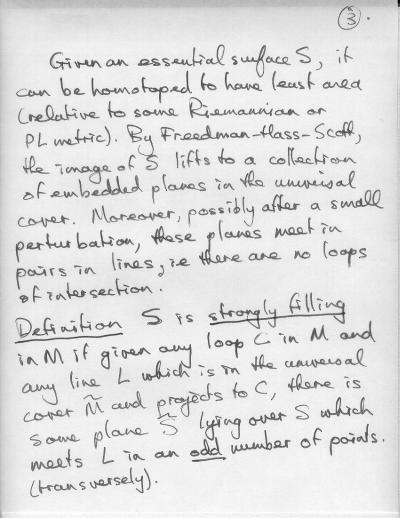 3.
Given an essential surface S, it
can be homotoped to have least area
(relative to some Riemannian or
PL metric). By Freedman-Hass-Scott,
the image of S lifts to a collection
of embedded planes in the universal
cover. Moreover, possibly after a small
perturbation, these planes meet in
pairs in lines, ie there are no loops
of intersection.
Definition S is strongly filling
in M if given any loop C in M and
any line L which is in the universal
cover M̃ and projects to C, there is
some plane S̃ lying over S which
meets L in an odd number of points.
(transversely).